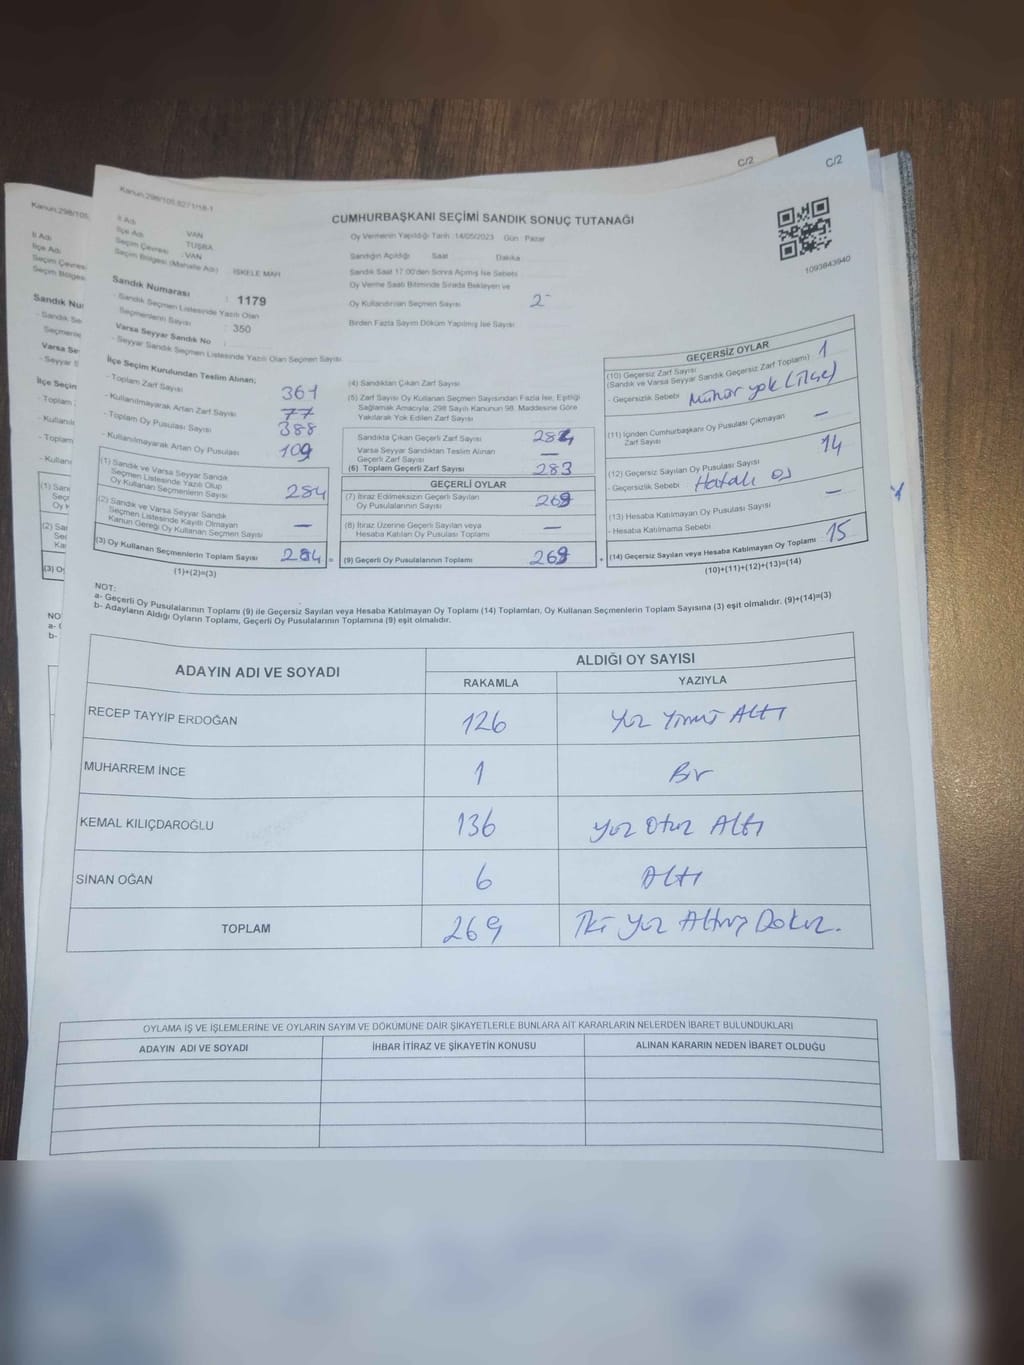 C/2
C/2
Kanun:298/105
Kanun:298/105,82/1/18-1
CUMHURBAŞKANI SEÇİMİ SANDIK SONUÇ TUTANAĞI
1093843940
İl Adı VAN
İlçe Adı : TUŞBA
Seçim Çevresi : VAN
Seçim Bölgesi (Mahalle Adı) : İSKELE MAH
Oy Vermenin Yapıldığı Tarih :14/05/2023 Gün : Pazar
Sandığın Açıldığı Saat Dakika
Sandık Saat 17.00'den Sonra Açılmış İse Sebebi
Oy Verme Saati Bitiminde Sırada Bekleyen ve
Oy Kullandırılan Seçmen Sayısı 2
Birden Fazla Sayım Döküm Yapılmış İse Sayısı
Sandık Numarası : 1179
- Sandık Seçmen Listesinde Yazılı Olan
Seçmenlerin Sayısı : 350
Varsa Seyyar Sandık No :
- Seyyar Sandık Seçmen Listesinde Yazılı Olan Seçmen Sayısı
İlçe Seçim Kurulundan Teslim Alınan;
- Toplam Zarf Sayısı 361
- Kullanılmayarak Artan Zarf Sayısı 77
- Toplam Oy Pusulası Sayısı 388
- Kullanılmayarak Artan Oy Pusulası 109
(1) Sandık ve Varsa Seyyar Sandık
Seçmen Listesinde Yazılı Olup
Oy Kullanan Seçmenlerin Sayısı 284
(2) Sandık ve Varsa Seyyar Sandık
Seçmen Listesinde Kayıtlı Olmayan
Kanun Gereği Oy Kullanan Seçmen Sayısı —
(3) Oy Kullanan Seçmenlerin Toplam Sayısı 284 =
(1)+(2)=(3)
(4) Sandıktan Çıkan Zarf Sayısı
(5) Zarf Sayısı Oy Kullanan Seçmen Sayısından Fazla İse, Eşitliği
Sağlamak Amacıyla; 298 Sayılı Kanunun 98. Maddesine Göre
Yakılarak Yok Edilen Zarf Sayısı
Sandıkta Çıkan Geçerli Zarf Sayısı
Varsa Seyyar Sandıktan Teslim Alınan
Geçerli Zarf Sayısı —
(6) Toplam Geçerli Zarf Sayısı 283
GEÇERLİ OYLAR
(7) İtiraz Edilmeksizin Geçerli Sayılan
Oy Pusulalarının Sayısı 269
(8) İtiraz Üzerine Geçerli Sayılan veya
Hesaba Katılan Oy Pusulası Toplamı —
(9) Geçerli Oy Pusulalarının Toplamı 269 +
GEÇERSİZ OYLAR
(10) Geçersiz Zarf Sayısı
(Sandık ve Varsa Seyyar Sandık Geçersiz Zarf Toplamı) 1
- Geçersizlik Sebebi Mühür yok (ilçe)
(11) İçinden Cumhurbaşkanı Oy Pusulası Çıkmayan
Zarf Sayısı —
(12) Geçersiz Sayılan Oy Pusulası Sayısı 14
- Geçersizlik Sebebi Hatalı oy
(13) Hesaba Katılmayan Oy Pusulası Sayısı —
- Hesaba Katılmama Sebebi
(14) Geçersiz Sayılan veya Hesaba Katılmayan Oy Toplamı 15
(10)+(11)+(12)+(13)=(14)
NOT:
a- Geçerli Oy Pusulalarının Toplamı (9) ile Geçersiz Sayılan veya Hesaba Katılmayan Oy Toplamı (14) Toplamları, Oy Kullanan Seçmenlerin Toplam Sayısına (3) eşit olmalıdır. (9)+(14)=(3)
b- Adayların Aldığı Oyların Toplamı, Geçerli Oy Pusulalarının Toplamına (9) eşit olmalıdır.
ADAYIN ADI VE SOYADI ALDIĞI OY SAYISI
RAKAMLA YAZIYLA
RECEP TAYYİP ERDOĞAN 126 Yüz Yirmi Altı
MUHARREM İNCE 1 Bir
KEMAL KILIÇDAROĞLU 136 Yüz Otuz Altı
SİNAN OĞAN 6 Altı
TOPLAM 269 İki Yüz Altmış Dokuz.
OYLAMA İŞ VE İŞLEMLERİNE VE OYLARIN SAYIM VE DÖKÜMÜNE DAİR ŞİKAYETLERLE BUNLARA AİT KARARLARIN NELERDEN İBARET BULUNDUKLARI
ADAYIN ADI VE SOYADI İHBAR İTİRAZ VE ŞİKAYETİN KONUSU ALINAN KARARIN NEDEN İBARET OLDUĞU